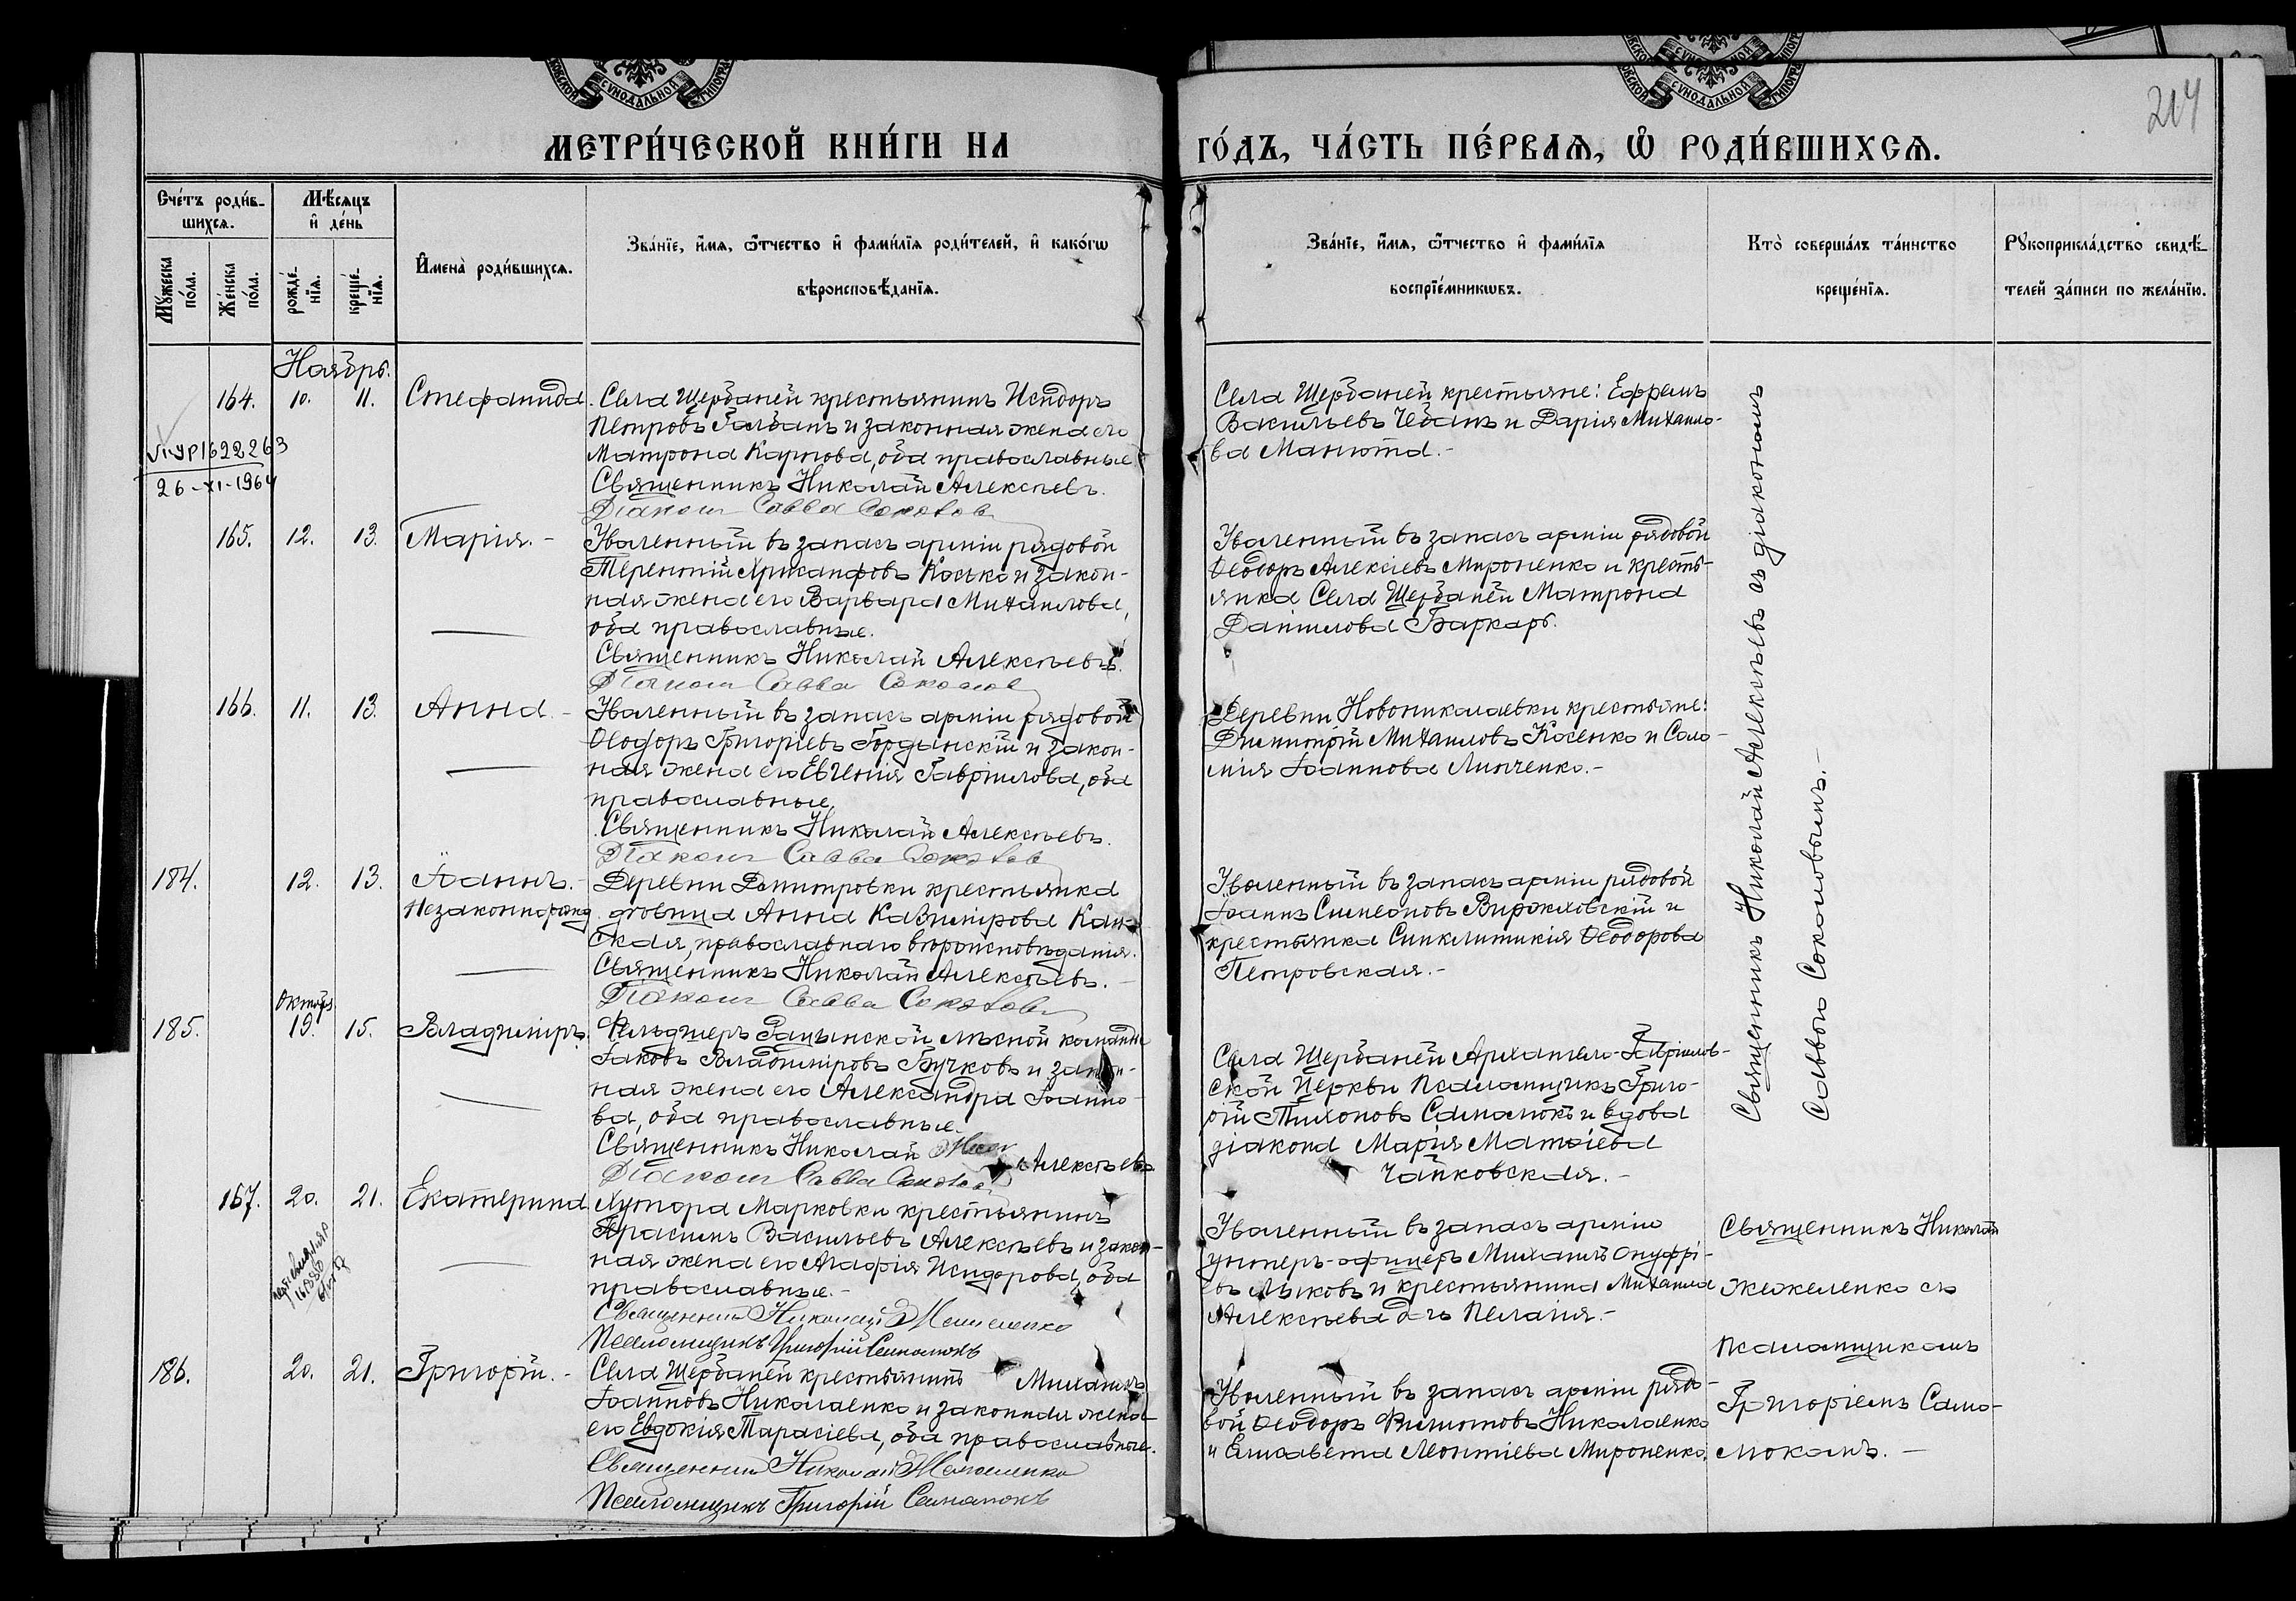 МОСКОВСКОЙ СѴНОДАЛЬНОЙ ТИПОГРАФ
МОСКОВСКОЙ СѴНОДАЛЬНОЙ ТИПОГРАФ
214
МЕТРИ́ЧЕСКОЙ КНИ́ГИ НА
ГО́ДЪ, ЧА́СТЬ ПЕ́РВАѦ, Ѽ РОДИ́ВШИХСѦ.
Счéтъ роди́в-
шихсѧ.
Мѣ́сѧцъ
и҆ де́нь
Мꙋ́жеска
по́ла.
Же́нска
по́ла.
рожде́-
нїѧ.
креще́-
нїѧ.
И҆мена̀ роди́вшихсѧ.
Зва́нїе, и҆́мѧ, ѻ҆́тчество и҆ фами́лїѧ роди́телей, и҆ како́гѡ
вѣроисповѣ́данїѧ.
Зва́нїе, и҆́мѧ, ѻ҆́тчество и҆ фами́лїѧ
воспрїе́мникѡвъ.
Кто̀ соверша́лъ та́инство
креще́нїѧ.
Рꙋкоприкла́дство свидѣ́-
телей за́писи по жела́нїю.
Ноябрь.
164. 10. 11. Стефанида. Села Щербаней крестьянинъ Исидоръ
Петровъ Галбанъ и законная жена его
Матрона Карпова, оба православные
Священникъ Николай Алексѣевъ.
Діаконъ Савва Соколов
Села Щербаней крестьяне: Ефремъ
Васильевъ Чебанъ и Дарія Михаило-
ва Манюта.-
VI-УР 1622263
26-XI-1964
165. 12. 13. Марія.- Уволенный въ запасъ арміи рядовой
Терентій Ярисанфовъ Косько и закон-
ная жена его Варвара Михаилова,
оба православные.
Священникъ Николай Алексѣевъ.
Діаконъ Савва Соколов
Уволенный въ запасъ арміи рядовой
Ѳеодоръ Алексіевъ Мироненко и кресть-
янка Села Щербаней Матрона
Даніилова Баркарь.
166. 11. 13. Анна.- Уволенный въ запасъ арміи рядовой
Ѳеодоръ Григоріевъ Гордынскій и закон-
ная жена его Евгенія Гавріилова, оба
православные.
Священникъ Николай Алексѣевъ.
Діаконъ Савва Соколов
Деревни Новониколаевки крестьяне:
Димитрій Михаиловъ Косенко и Соло-
мія Іоаннова Линченко.-
184. 12. 13. Іоаннъ.- Деревни Димитровки крестьянка
Незаконнорожд. дѣвица Анна Казимірова Кан-
ская, православнаго вѣроисповѣданія.
Священникъ Николай Алексѣевъ.-
Діаконъ Савва Соколов
Уволенный въ запасъ арміи рядовой
Іоаннъ Симеоновъ Виржховскій и
крестьянка Синклитикія Ѳеодорова
Петровская.-
Октябрь
185. 19. 15. Владиміръ. Фельдшеръ Рацынской лѣсной команды
Іаковъ Владиміровъ Бучковъ и закон-
ная жена его Александра Іоанно-
ва, оба православные.
Священникъ Николай Алексѣевъ
Діаконъ Савва Соколов
Села Щербаней Архангело-Гавріилов-
ской Церкви Псаломщикъ Григо-
рій Тихоновъ Самолюкъ и вдова
діакона Марія Матѳіева
Чайковская.-
Священникъ Николай Алексѣевъ съ діакономъ
Саввою Соколовымъ.-
167. 20. 21. Екатерина Хутора Марковки крестьянинъ
Герасимъ Васильевъ Алексѣевъ и закон-
ная жена его Агафія Исидорова, оба
православные.-
Священникъ Николай Жежеленко
Псаломщикъ Григорій Самолюкъ
Уволенный въ запасъ арміи
унтеръ-офицеръ Михаилъ Онуфрі-
евъ Лыковъ и крестьянина Михаила
Алексѣева д-чь Пелагія.-
Священникъ Николай
Жежеленко съ
Псаломщикомъ
Григоріемъ Само-
люкомъ.-
186. 20. 21. Григорій.- Села Щербаней крестьянинъ Михаилъ
Іоанновъ Николаенко и законная жена
его Евдокія Тарасіева, оба православные.
Священникъ Николай Жежеленко
Псаломщикъ Григорій Самолюкъ
Уволенный въ запасъ арміи рядо-
вой Ѳеодоръ Филиповъ Николаенко
и Елисавета Леонтіева Мироненко.